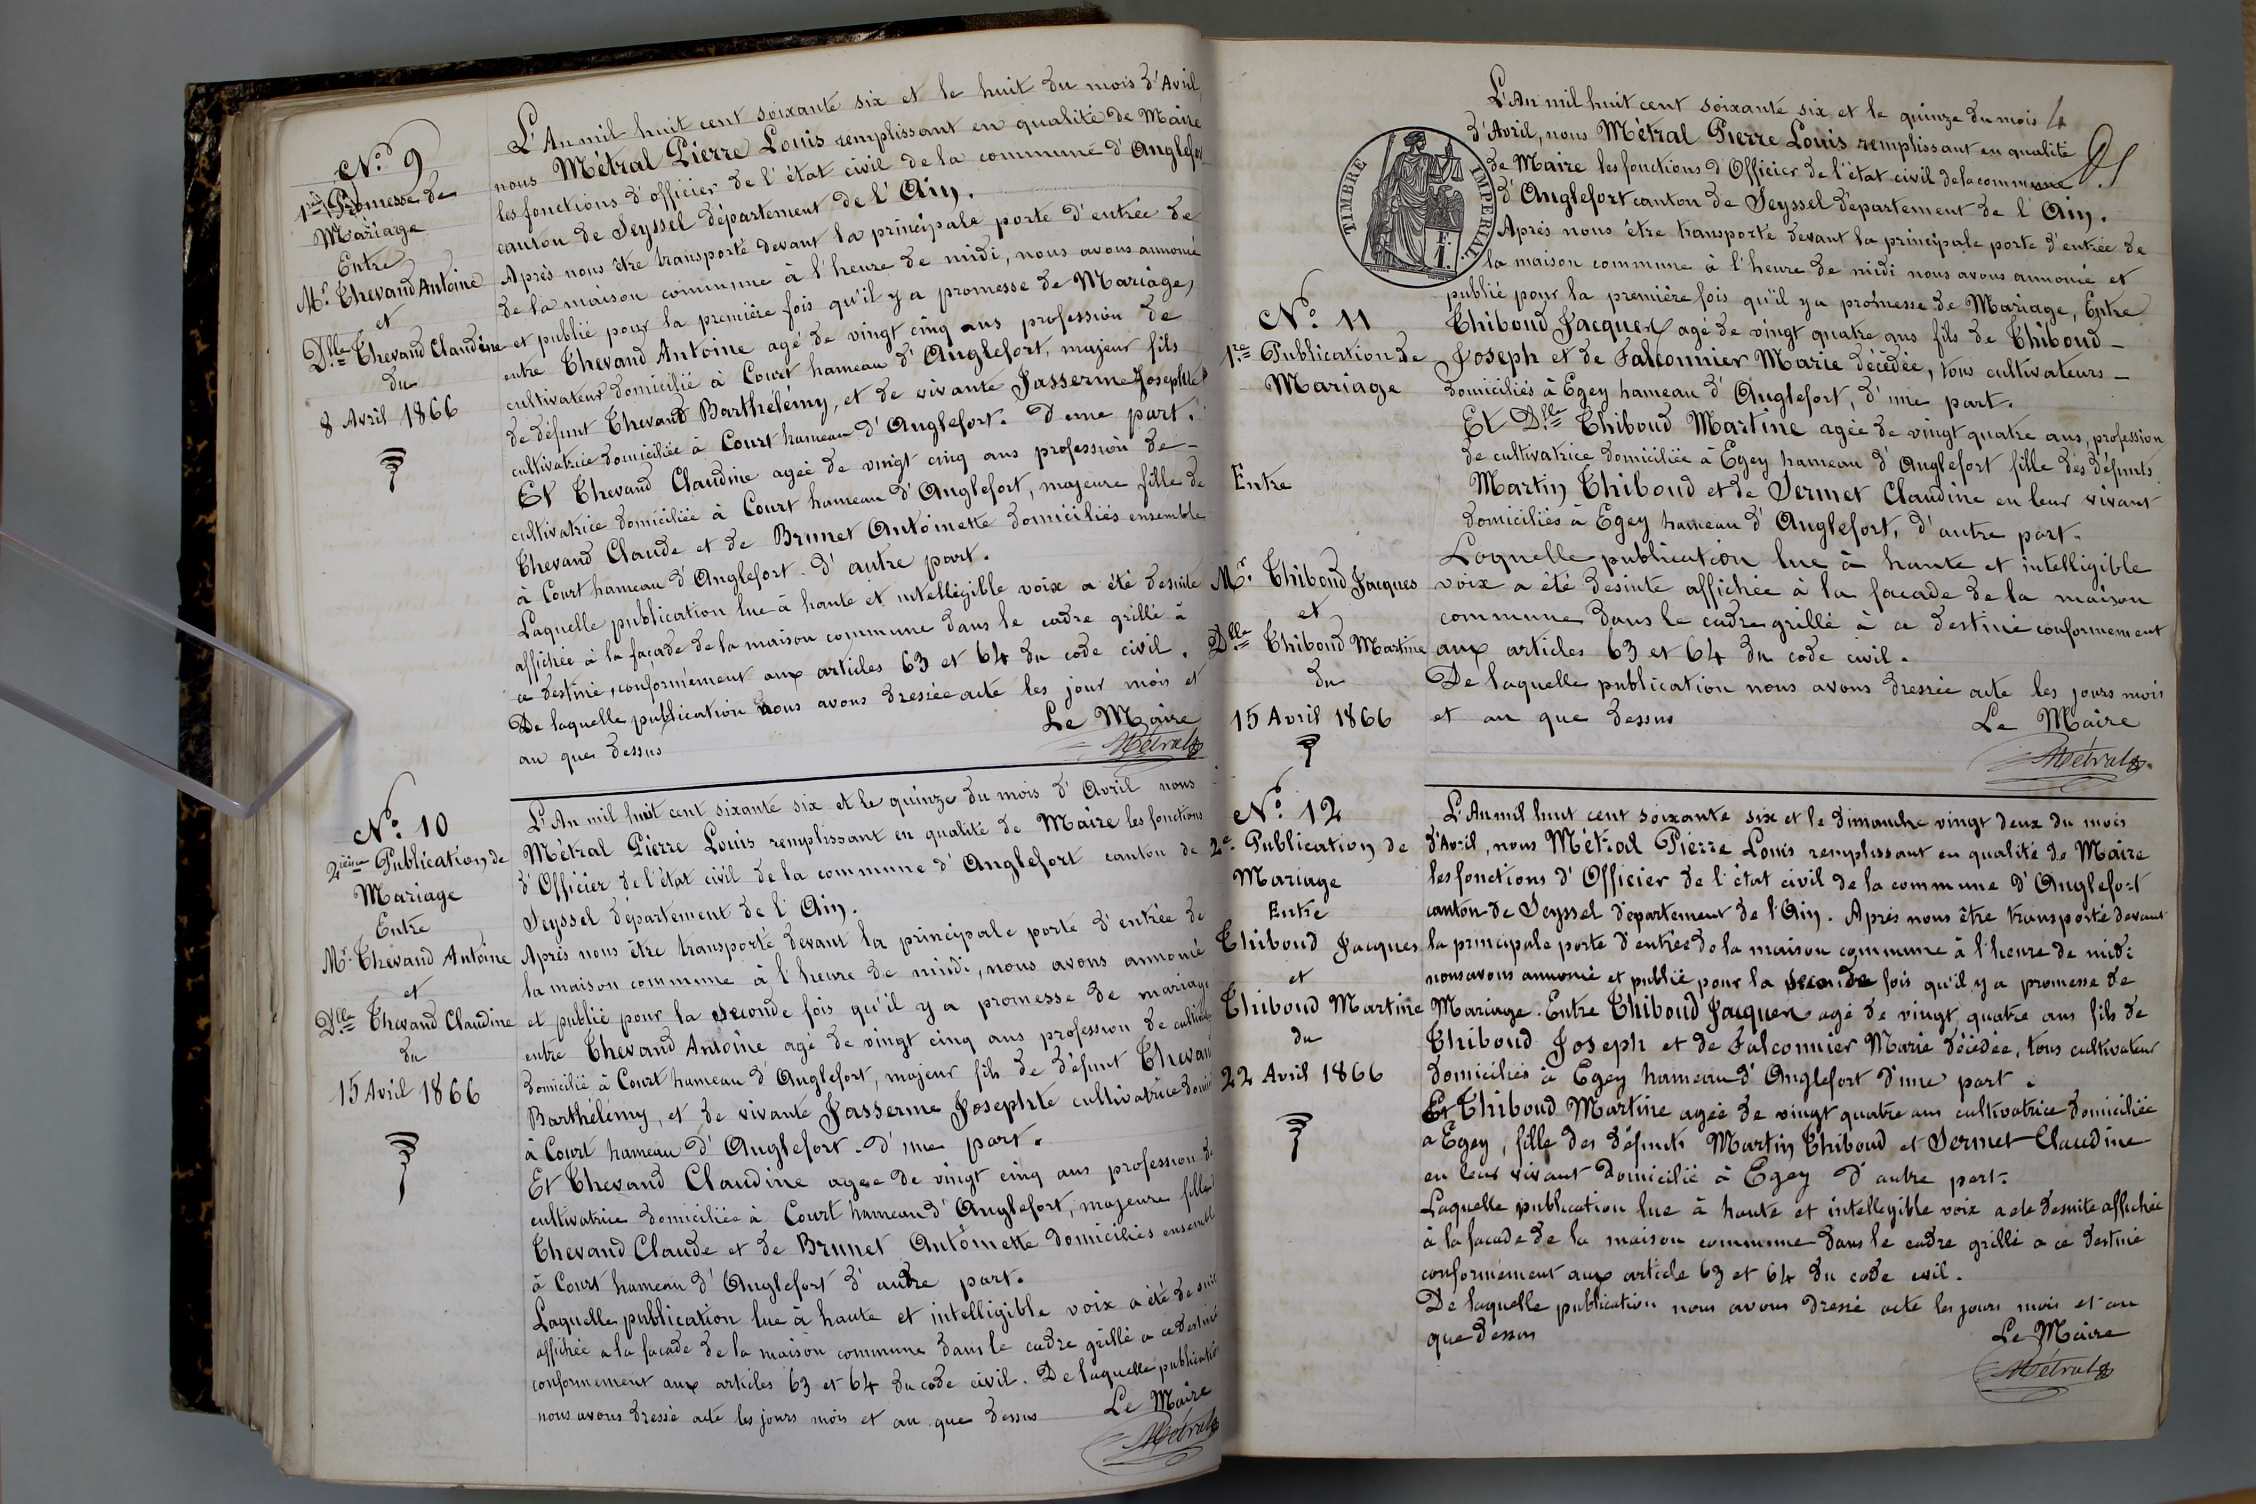 N.º 9
1.ère Promesse de
Mariage
Entre
M.r Thevand Antoine
et
D.lle Thevand Claudine
du
8 Avril 1866
L'An mil huit cent soixante six et le huit du mois d'Avril,
nous Métral Pierre Louis remplissant en qualité de Maire
les fonctions d'officier de l'état civil de la commune d'Anglefort
canton de Seyssel département de l'Ain.
Après nous être transporté devant la principale porte d'entrée de
de la maison commune à l'heure de midi, nous avons annoncé
et publié pour la première fois qu'il y a promesse de Mariage,
entre Thevand Antoine agé de vingt cinq ans profession de
cultivateur domicilié à Court hameau d'Anglefort, majeur fils
de défunt Thevand Barthélémy, et de vivante Jasserme Josephte
cultivatrice domiciliée à Court hameau d'Anglefort. D'une part.
Et Thevand Claudine agée de vingt cinq ans profession de
cultivatrice domiciliée à Court hameau d'Anglefort, majeure fille de
Thevand Claude et de Brunet Antoinette domiciliés ensemble
à Court hameau d'Anglefort. d'autre part.
Laquelle publication lue à haute et intelligible voix a été desuite
affichée à la façade de la maison commune dans le cadre grillé à
ce destiné, conformément aux articles 63 et 64 du code civil.
De laquelle publication nous avons dressée acte les jour mois et
an que dessus
Le Maire
Métral
N.º 10
2ième Publication de
Mariage
Entre
M.r Thevand Antoine
et
D.lle Thevand Claudine
du
15 Avril 1866
L'An mil huit cent sixante six et le quinze du mois d'Avril nous
Métral Pierre Louis remplissant en qualité de Maire les fonctions
d'Officier de l'état civil de la commune d'Anglefort canton de
Seyssel département de l'Ain.
Après nous être transporté devant la principale porte d'entrée de
la maison commune à l'heure de midi, nous avons annoncé
et publié pour la seconde fois qu'il y a promesse de mariage
entre Thevand Antoine agé de vingt cinq ans profession de
domicilié à Court hameau d'Anglefort, majeur fils de défunt Thevand
Barthélémy, et de vivante Jasserme Josephte cultivatrice
à Court hameau d'Anglefort. d'une part.
Et Thevand Claudine agée de vingt cinq ans profession de
cultivatrice domiciliée à Court hameau d'Anglefort, majeure fille
Thevand Claude et de Brunet Antoinette domiciliés ensemble
à Court hameau d'Anglefort d'autre part.
Laquelle publication lue à haute et intelligible voix a été de suite
affichée a la façade de la maison commune dans le cadre grillé a ce destiné
conformément aux articles 63 et 64 du code civil. De laquelle publication
nous avons dressé acte les jours mois et an que dessus
Le Maire
Métral
4
TIMBRE IMPERIAL
F.
1.
N.º 11
1.re Publication de
Mariage
Entre
M.r Thiboud Jacques
et
D.lle Thiboud Martine
du
15 Avril 1866
L'An mil huit cent soixante six et le quinze du mois
d'Avril, nous Métral Pierre Louis remplissant en qualité
de Maire les fonctions d'Officier de l'état civil de la commune
d'Anglefort canton de Seyssel département de l'Ain.
Après nous être transporté devant la principale porte d'entrée de
la maison commune à l'heure de midi nous avons annoncé et
publié pour la première fois qu'il y a promesse de Mariage, Entre
Thiboud Jacques agé de vingt quatre ans fils de Thiboud
Joseph et de Falconnier Marie décédée, tous cultivateurs
domiciliés à Egey hameau d'Anglefort, d'une part.
Et D.lle Thiboud Martine agée de vingt quatre ans, profession
de cultivatrice domiciliée à Egey hameau d'Anglefort fille des défunts
Martin Thiboud et de Sermet Claudine en leur vivant
domiciliés à Egey hameau d'Anglefort, d'autre part.
Laquelle publication lue à haute et intelligible
voix a été desuite affichée à la facade de la maison
commune dans le cadre grillé à ce destiné conformement
aux articles 63 et 64 du code civil.
De laquelle publication nous avons dressée acte les jours mois
et an que dessus
Le Maire
Métral
N.º 12
2e Publication de
Mariage
Entre
Thiboud Jacques
et
Thiboud Martine
du
22 Avril 1866
L'An mil huit cent soixante six et le dimanche vingt deux du mois
d'Avril, nous Métral Pierre Louis remplissant en qualité de Maire
les fonctions d'Officier de l'état civil de la commune d'Anglefort
canton de Seyssel département de l'Ain. Après nous être transporté devant
la principale porte d'entrée de la maison commune à l'heure de midi
nous avons annoncé et publié pour la seconde fois qu'il y a promesse de
Mariage. Entre Thiboud Jacques agé de vingt quatre ans fils de
Thiboud Joseph et de Falconnier Marie décédée, tous cultivateur
domiciliés à Egey hameau d'Anglefort d'une part.
Et Thiboud Martine agée de vingt quatre ans cultivatrice domiciliée
a Egey, fille des défunts Martin Thiboud et Sermet Claudine
en leur vivant domicilié à Egey d'autre part.
Laquelle publication lue à haute et intelligible voix a ete desuite affichée
à la facade de la maison commune dans le cadre grillé a ce destiné
conformément aux article 63 et 64 du code civil.
De laquelle publication nous avons dressé acte les jours mois et an
que dessus
Le Maire
Métral